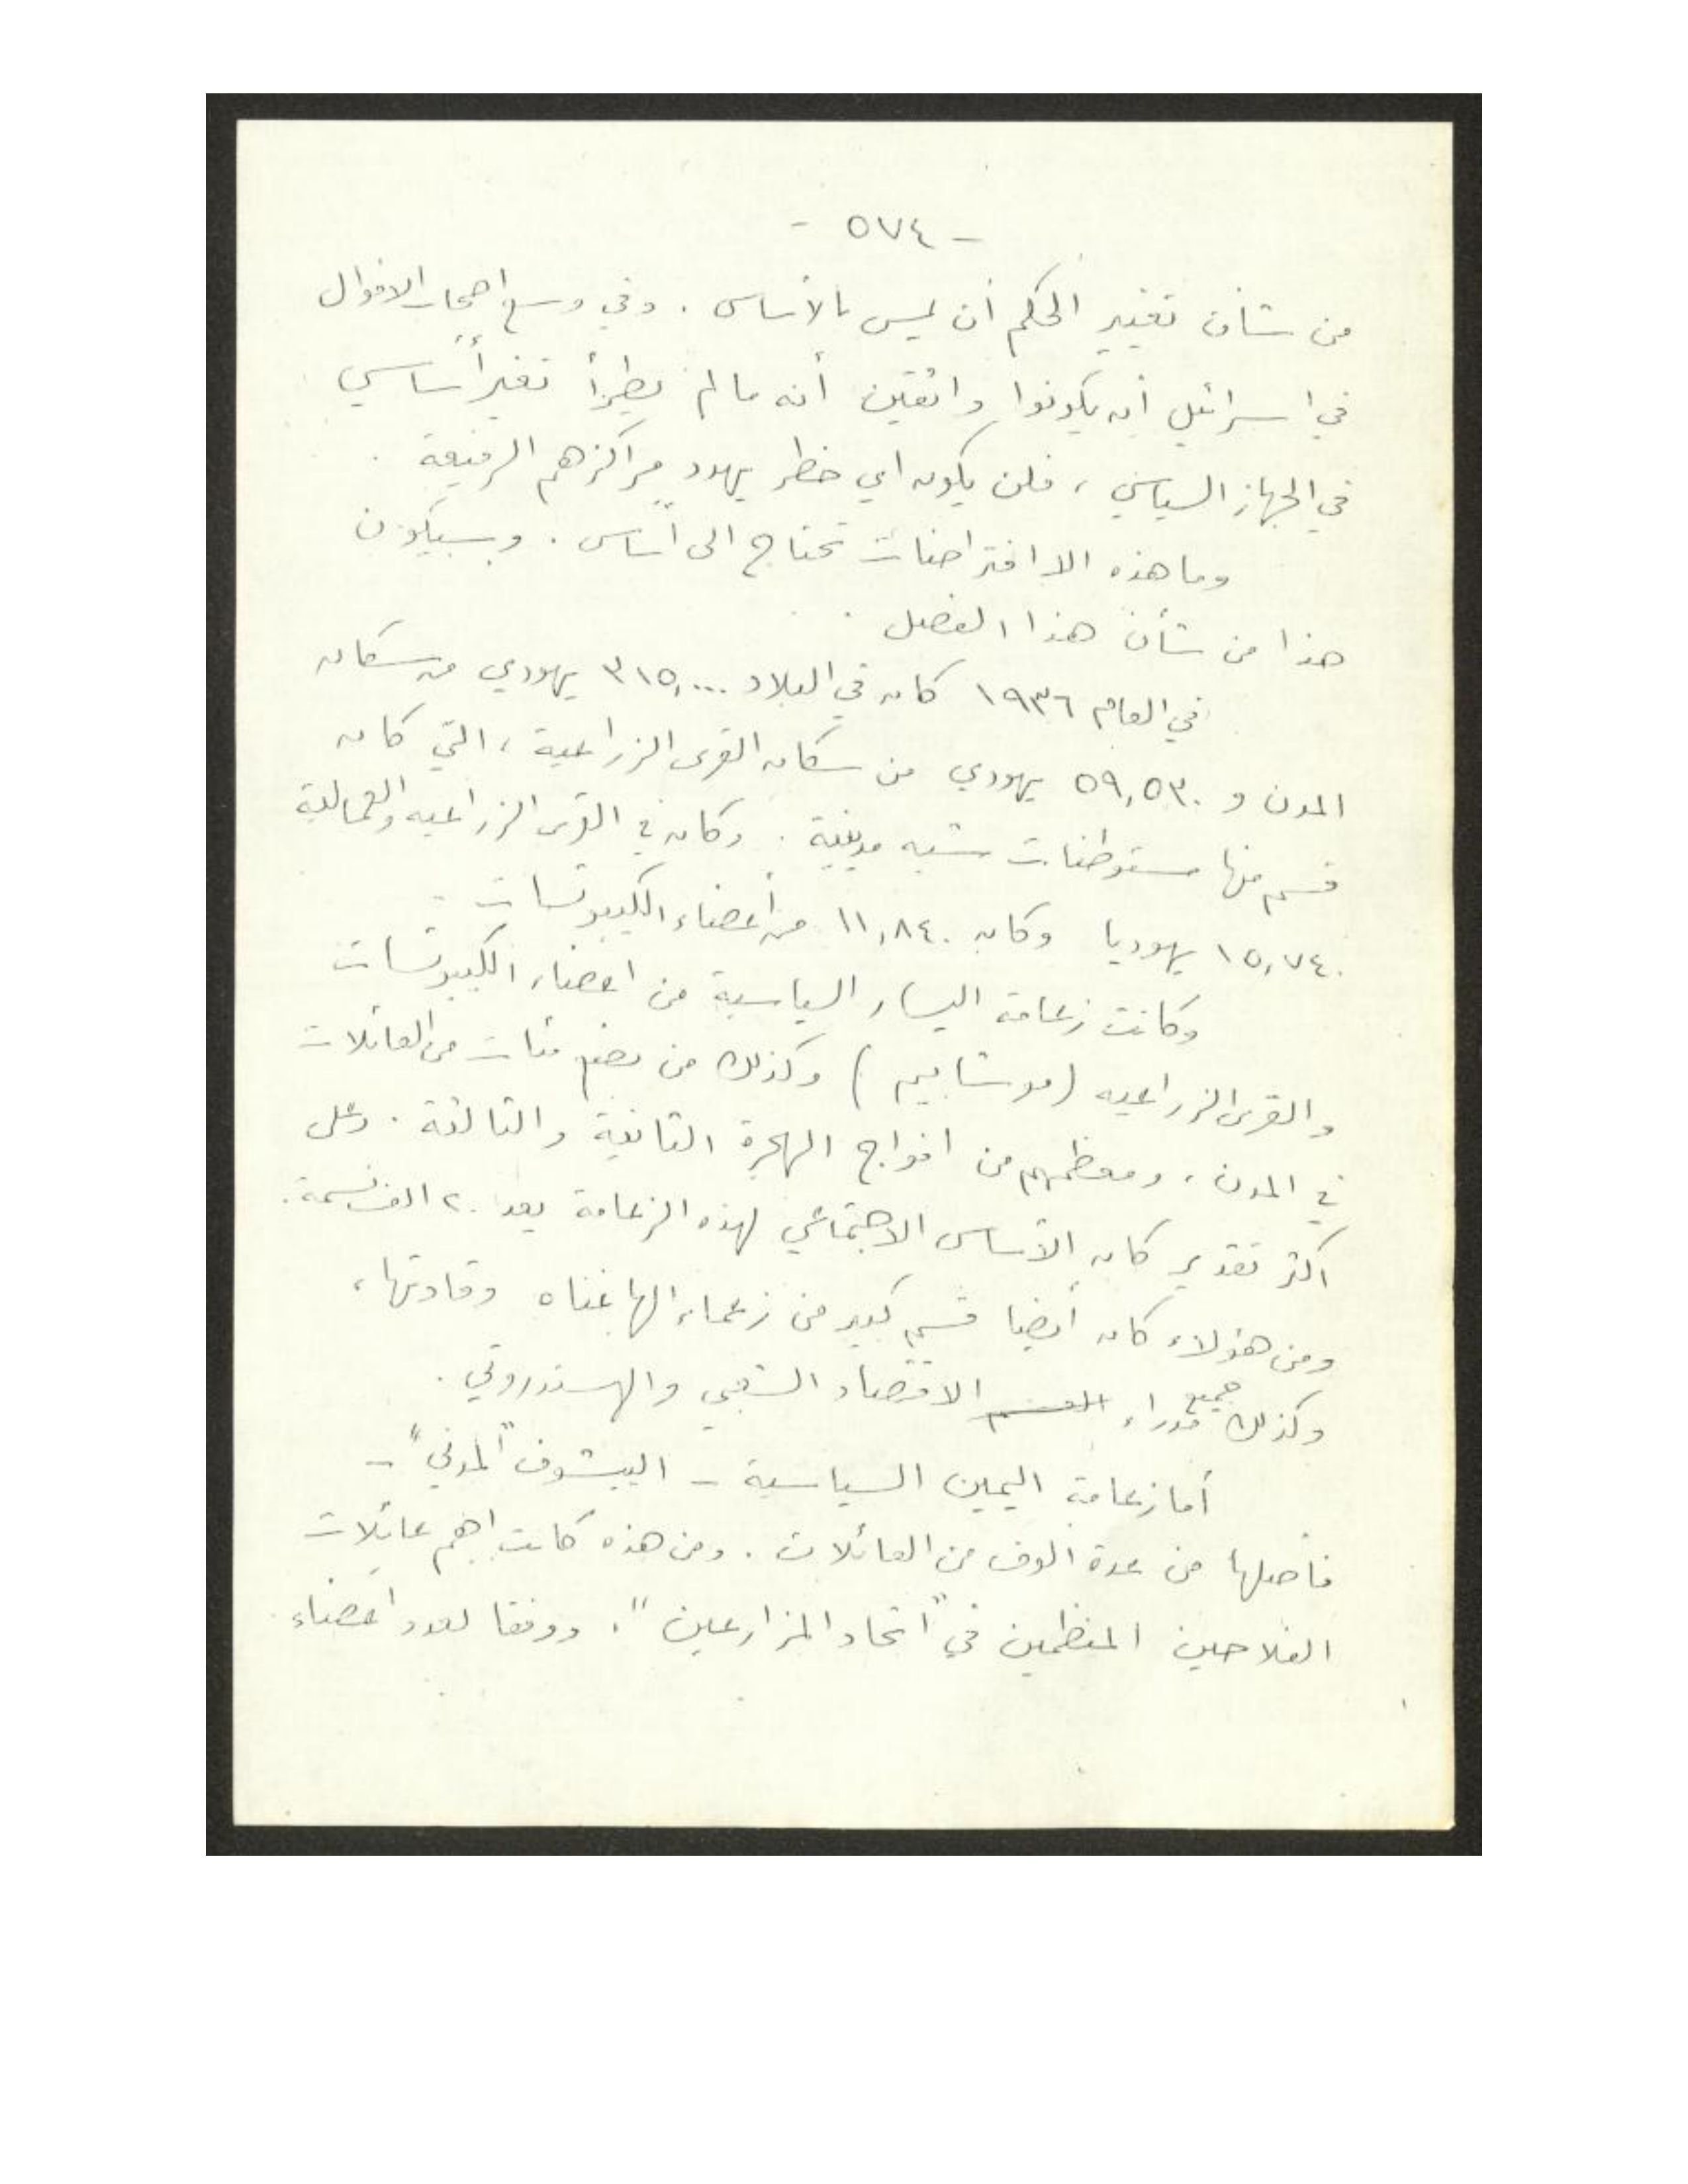 - ٥٧٤ -
من شأن تغيير الحكم أن يمس بالأساس . وفي وسع اصحاب الاقوال
في اسرائيل أن يكونوا واثقين أنه ما لم يطرأ تغير أساسي
في الجهاز السياسي ، فلن يكون اي خطر يهدد مراكزهم الرفيعة .
وما هذه الا افتراضات تحتاج الى أساس . وسيكون
هذا من شأن هذا الفصل .
في العام ١٩٣٦ كان في البلاد ٣١٥,٠٠٠ يهودي من سكان
المدن و ٥٩,٥٣٠ يهودي من سكان القرى الزراعية ، التي كان
قسم منها مستوطنات شبه مدينية . وكان في القرى الزراعيه والعمالية
١٥,٧٤٠ يهوديا وكان ١١,٨٤٠ من أعضاء الكيبوتسات
وكانت زعامة اليسار السياسية من اعضاء الكيبوتسات
والقرى الزراعيه (موشابيم) وكذلك من بضع مئات من العائلات
في المدن ، ومعظمهم من افواج الهجرة الثانية والثالثة . وعلى
اكثر تقدير كان الأساس الاجتماعي لهذه الزعامة يعد ٢٠ الف نسمة .
ومن هؤلاء كان أيضا قسم كبير من زعماء الهاغناه وقادتها ،
وكذلك جميع مدراء القسم الاقتصاد الشعبي والهستدروتي .
أما زعامة اليمين السياسية - الييشوف "المدني" -
فأصلها من عدة ألوف من العائلات . ومن هذه كانت اهم عائلات
الفلاحين المنظمين في "اتحاد المزارعين" . ووفقا لعدد أعضاء